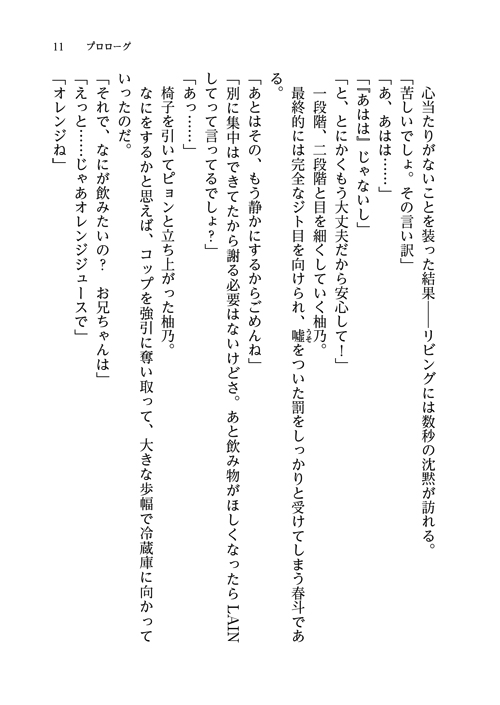 11 プロローグ
心当たりがないことを装った結果――リビングには数秒の沈黙が訪れる。
「苦しいでしょ。その言い訳」
「あ、あはは……」
「『あはは』じゃないし」
「と、とにかくもう大丈夫だから安心して！」
一段階、二段階と目を細くしていく柚乃。
最終的には完全なジト目を向けられ、嘘をついた罰をしっかりと受けてしまう春斗であ
うそ
る。
「あとはその、もう静かにするからごめんね」
「別に集中はできてたから謝る必要はないけどさ。あと飲み物がほしくなったらLAIN
してって言ってるでしょ？」
「あっ……」
椅子を引いてピョンと立ち上がった柚乃。
なにをするかと思えば、コップを強引に奪い取って、大きな歩幅で冷蔵庫に向かって
いったのだ。
「それで、なにが飲みたいの？　お兄ちゃんは」
「えっと……じゃあオレンジジュースで」
「オレンジね」